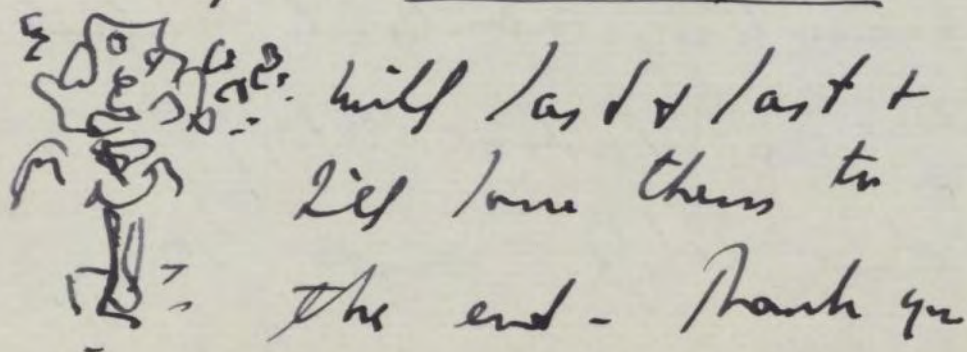 will last & last &
I'll love them to
the end - Thank you